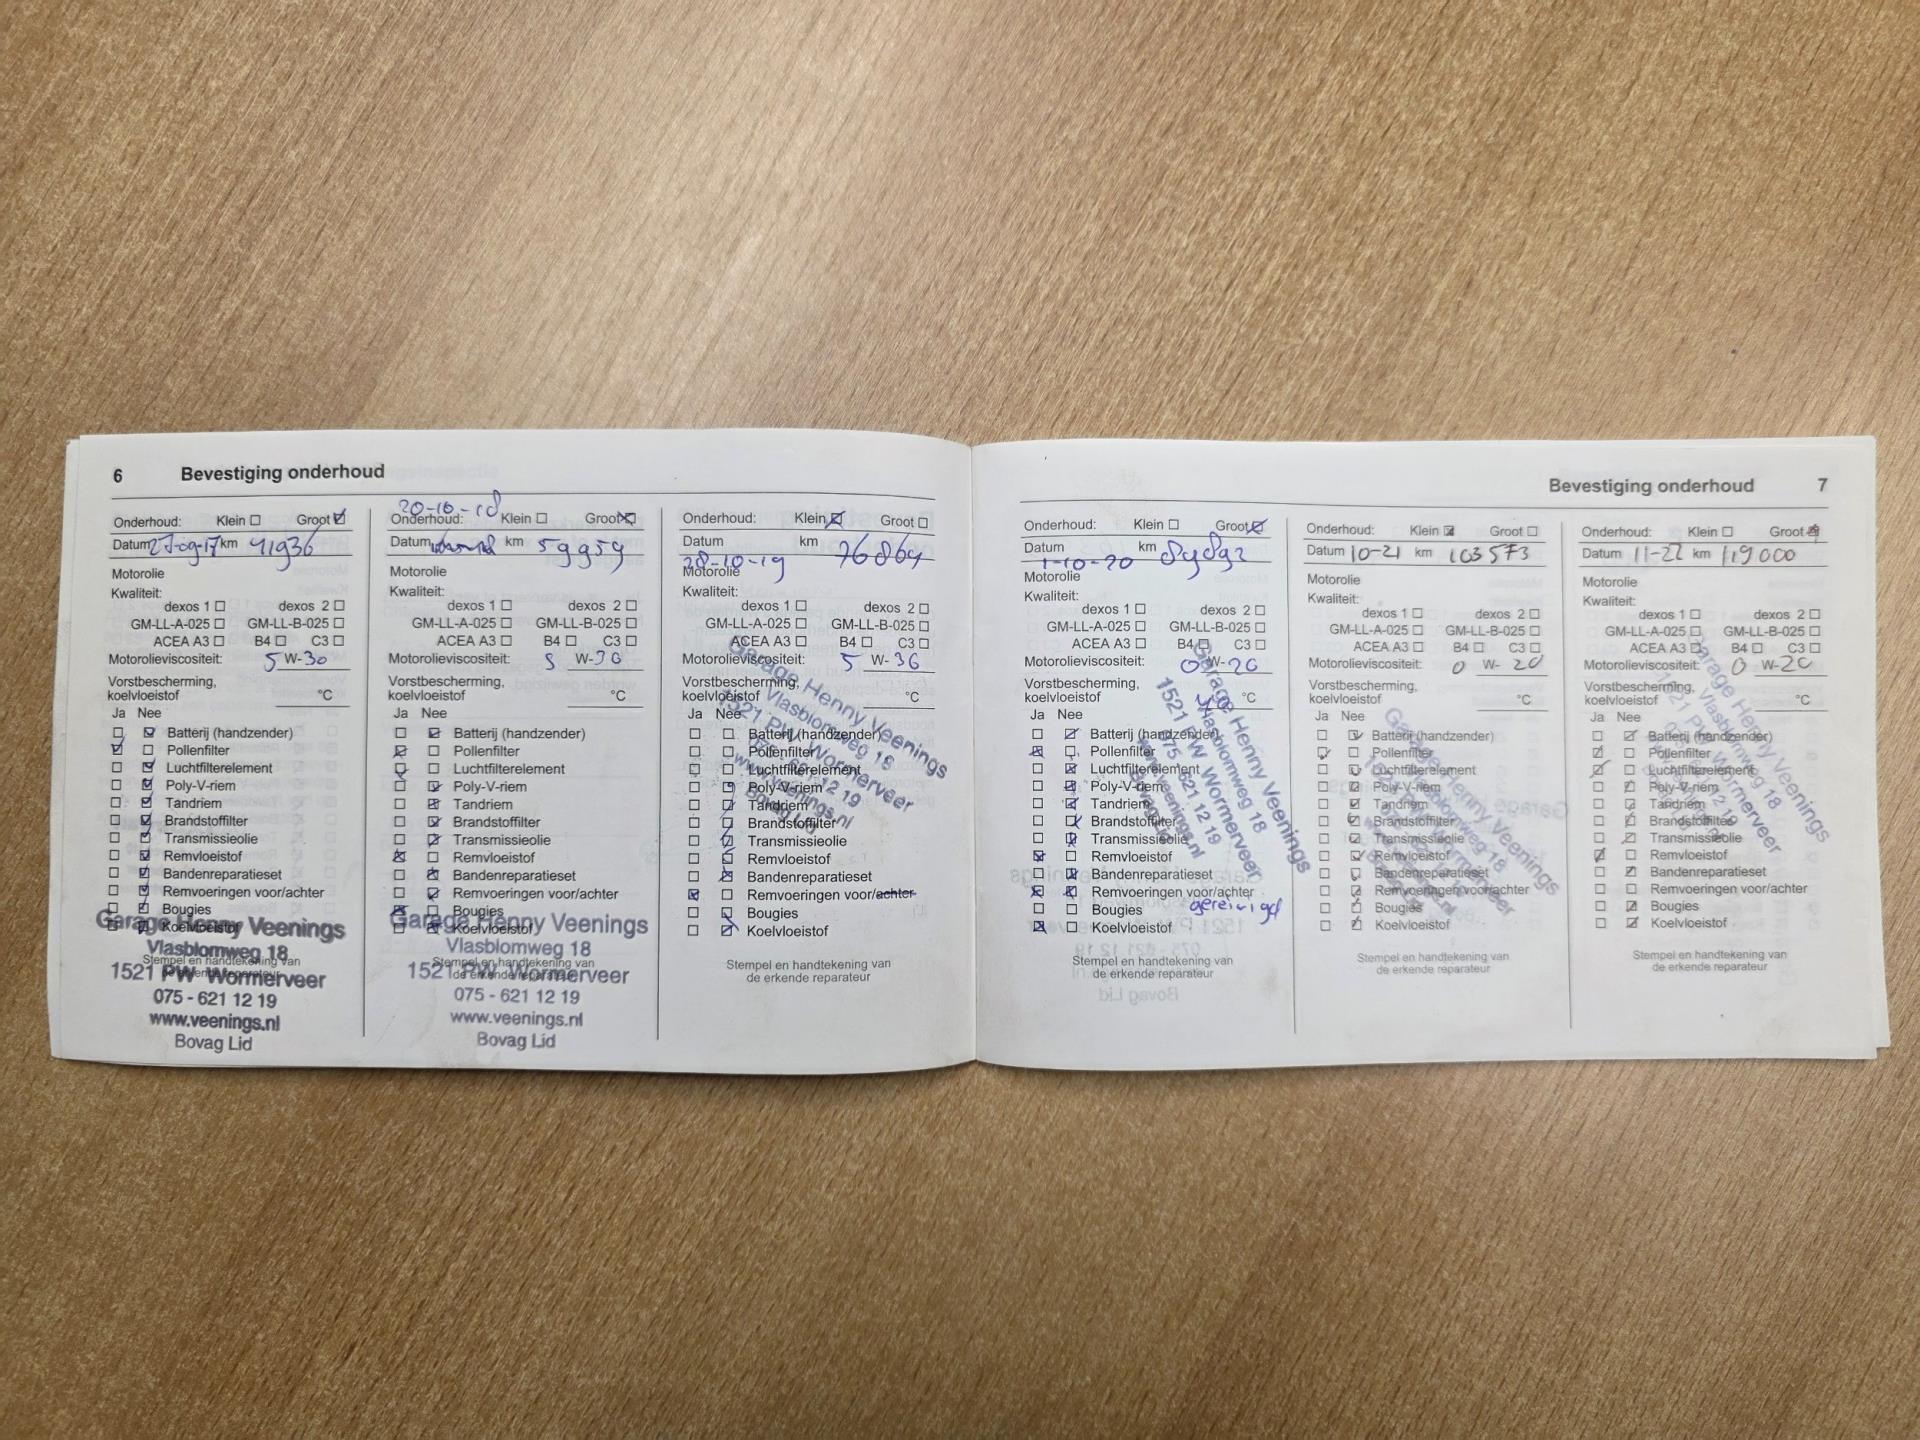 6 Bevestiging onderhoud
Onderhoud: Klein Groot
Datum 27-09-17 km 41936
Motorolie
Kwaliteit:
dexos 1 dexos 2
GM-LL-A-025 GM-LL-B-025
ACEA A3 B4 C3
Motorolieviscositeit: 5 W-30
Vorstbescherming,
koelvloeistof °C
Ja Nee
Batterij (handzender)
Pollenfilter
Luchtfilterelement
Poly-V-riem
Tandriem
Brandstoffilter
Transmissieolie
Remvloeistof
Bandenreparatieset
Remvoeringen voor/achter
Bougies
Koelvloeistof
Stempel en handtekening van
de erkende reparateur
Garage Henny Veenings
Vlasblomweg 18
1521 PW Wormerveer
075 - 621 12 19
www.veenings.nl
Bovag Lid
20-10-18
Onderhoud: Klein Groot
Datum km 59959
Motorolie
Kwaliteit:
dexos 1 dexos 2
GM-LL-A-025 GM-LL-B-025
ACEA A3 B4 C3
Motorolieviscositeit: 5 W-30
Vorstbescherming,
koelvloeistof °C
Ja Nee
Batterij (handzender)
Pollenfilter
Luchtfilterelement
Poly-V-riem
Tandriem
Brandstoffilter
Transmissieolie
Remvloeistof
Bandenreparatieset
Remvoeringen voor/achter
Bougies
Koelvloeistof
Stempel en handtekening van
de erkende reparateur
Garage Henny Veenings
Vlasblomweg 18
1521 PW Wormerveer
075 - 621 12 19
www.veenings.nl
Bovag Lid
Onderhoud: Klein Groot
Datum km 76864
28-10-19
Motorolie
Kwaliteit:
dexos 1 dexos 2
GM-LL-A-025 GM-LL-B-025
ACEA A3 B4 C3
Motorolieviscositeit: 5 W-30
Vorstbescherming,
koelvloeistof °C
Ja Nee
Batterij (handzender)
Pollenfilter
Luchtfilterelement
Poly-V-riem
Tandriem
Brandstoffilter
Transmissieolie
Remvloeistof
Bandenreparatieset
Remvoeringen voor/achter
Bougies
Koelvloeistof
Stempel en handtekening van
de erkende reparateur
Garage Henny Veenings
Vlasblomweg 18
1521 PW Wormerveer
075 - 621 12 19
www.veenings.nl
Bovag Lid
Bevestiging onderhoud 7
Onderhoud: Klein Groot
Datum km 89892
1-10-20
Motorolie
Kwaliteit:
dexos 1 dexos 2
GM-LL-A-025 GM-LL-B-025
ACEA A3 B4 C3
Motorolieviscositeit: 0 W-20
Vorstbescherming,
koelvloeistof °C
Ja Nee
Batterij (handzender)
Pollenfilter
Luchtfilterelement
Poly-V-riem
Tandriem
Brandstoffilter
Transmissieolie
Remvloeistof
Bandenreparatieset
Remvoeringen voor/achter
gereinigd
Bougies
Koelvloeistof
Stempel en handtekening van
de erkende reparateur
Garage Henny Veenings
Vlasblomweg 18
1521 PW Wormerveer
075 - 621 12 19
www.veenings.nl
Bovag Lid
Onderhoud: Klein Groot
Datum 10-21 km 103573
Motorolie
Kwaliteit:
dexos 1 dexos 2
GM-LL-A-025 GM-LL-B-025
ACEA A3 B4 C3
Motorolieviscositeit: 0 W-20
Vorstbescherming,
koelvloeistof °C
Ja Nee
Batterij (handzender)
Pollenfilter
Luchtfilterelement
Poly-V-riem
Tandriem
Brandstoffilter
Transmissieolie
Remvloeistof
Bandenreparatieset
Remvoeringen voor/achter
Bougies
Koelvloeistof
Stempel en handtekening van
de erkende reparateur
Garage Henny Veenings
Vlasblomweg 18
1521 PW Wormerveer
Onderhoud: Klein Groot
Datum 11-22 km 119000
Motorolie
Kwaliteit:
dexos 1 dexos 2
GM-LL-A-025 GM-LL-B-025
ACEA A3 B4 C3
Motorolieviscositeit: 0 W-20
Vorstbescherming,
koelvloeistof °C
Ja Nee
Batterij (handzender)
Pollenfilter
Luchtfilterelement
Poly-V-riem
Tandriem
Brandstoffilter
Transmissieolie
Remvloeistof
Bandenreparatieset
Remvoeringen voor/achter
Bougies
Koelvloeistof
Stempel en handtekening van
de erkende reparateur
Garage Henny Veenings
Vlasblomweg 18
1521 PW Wormerveer